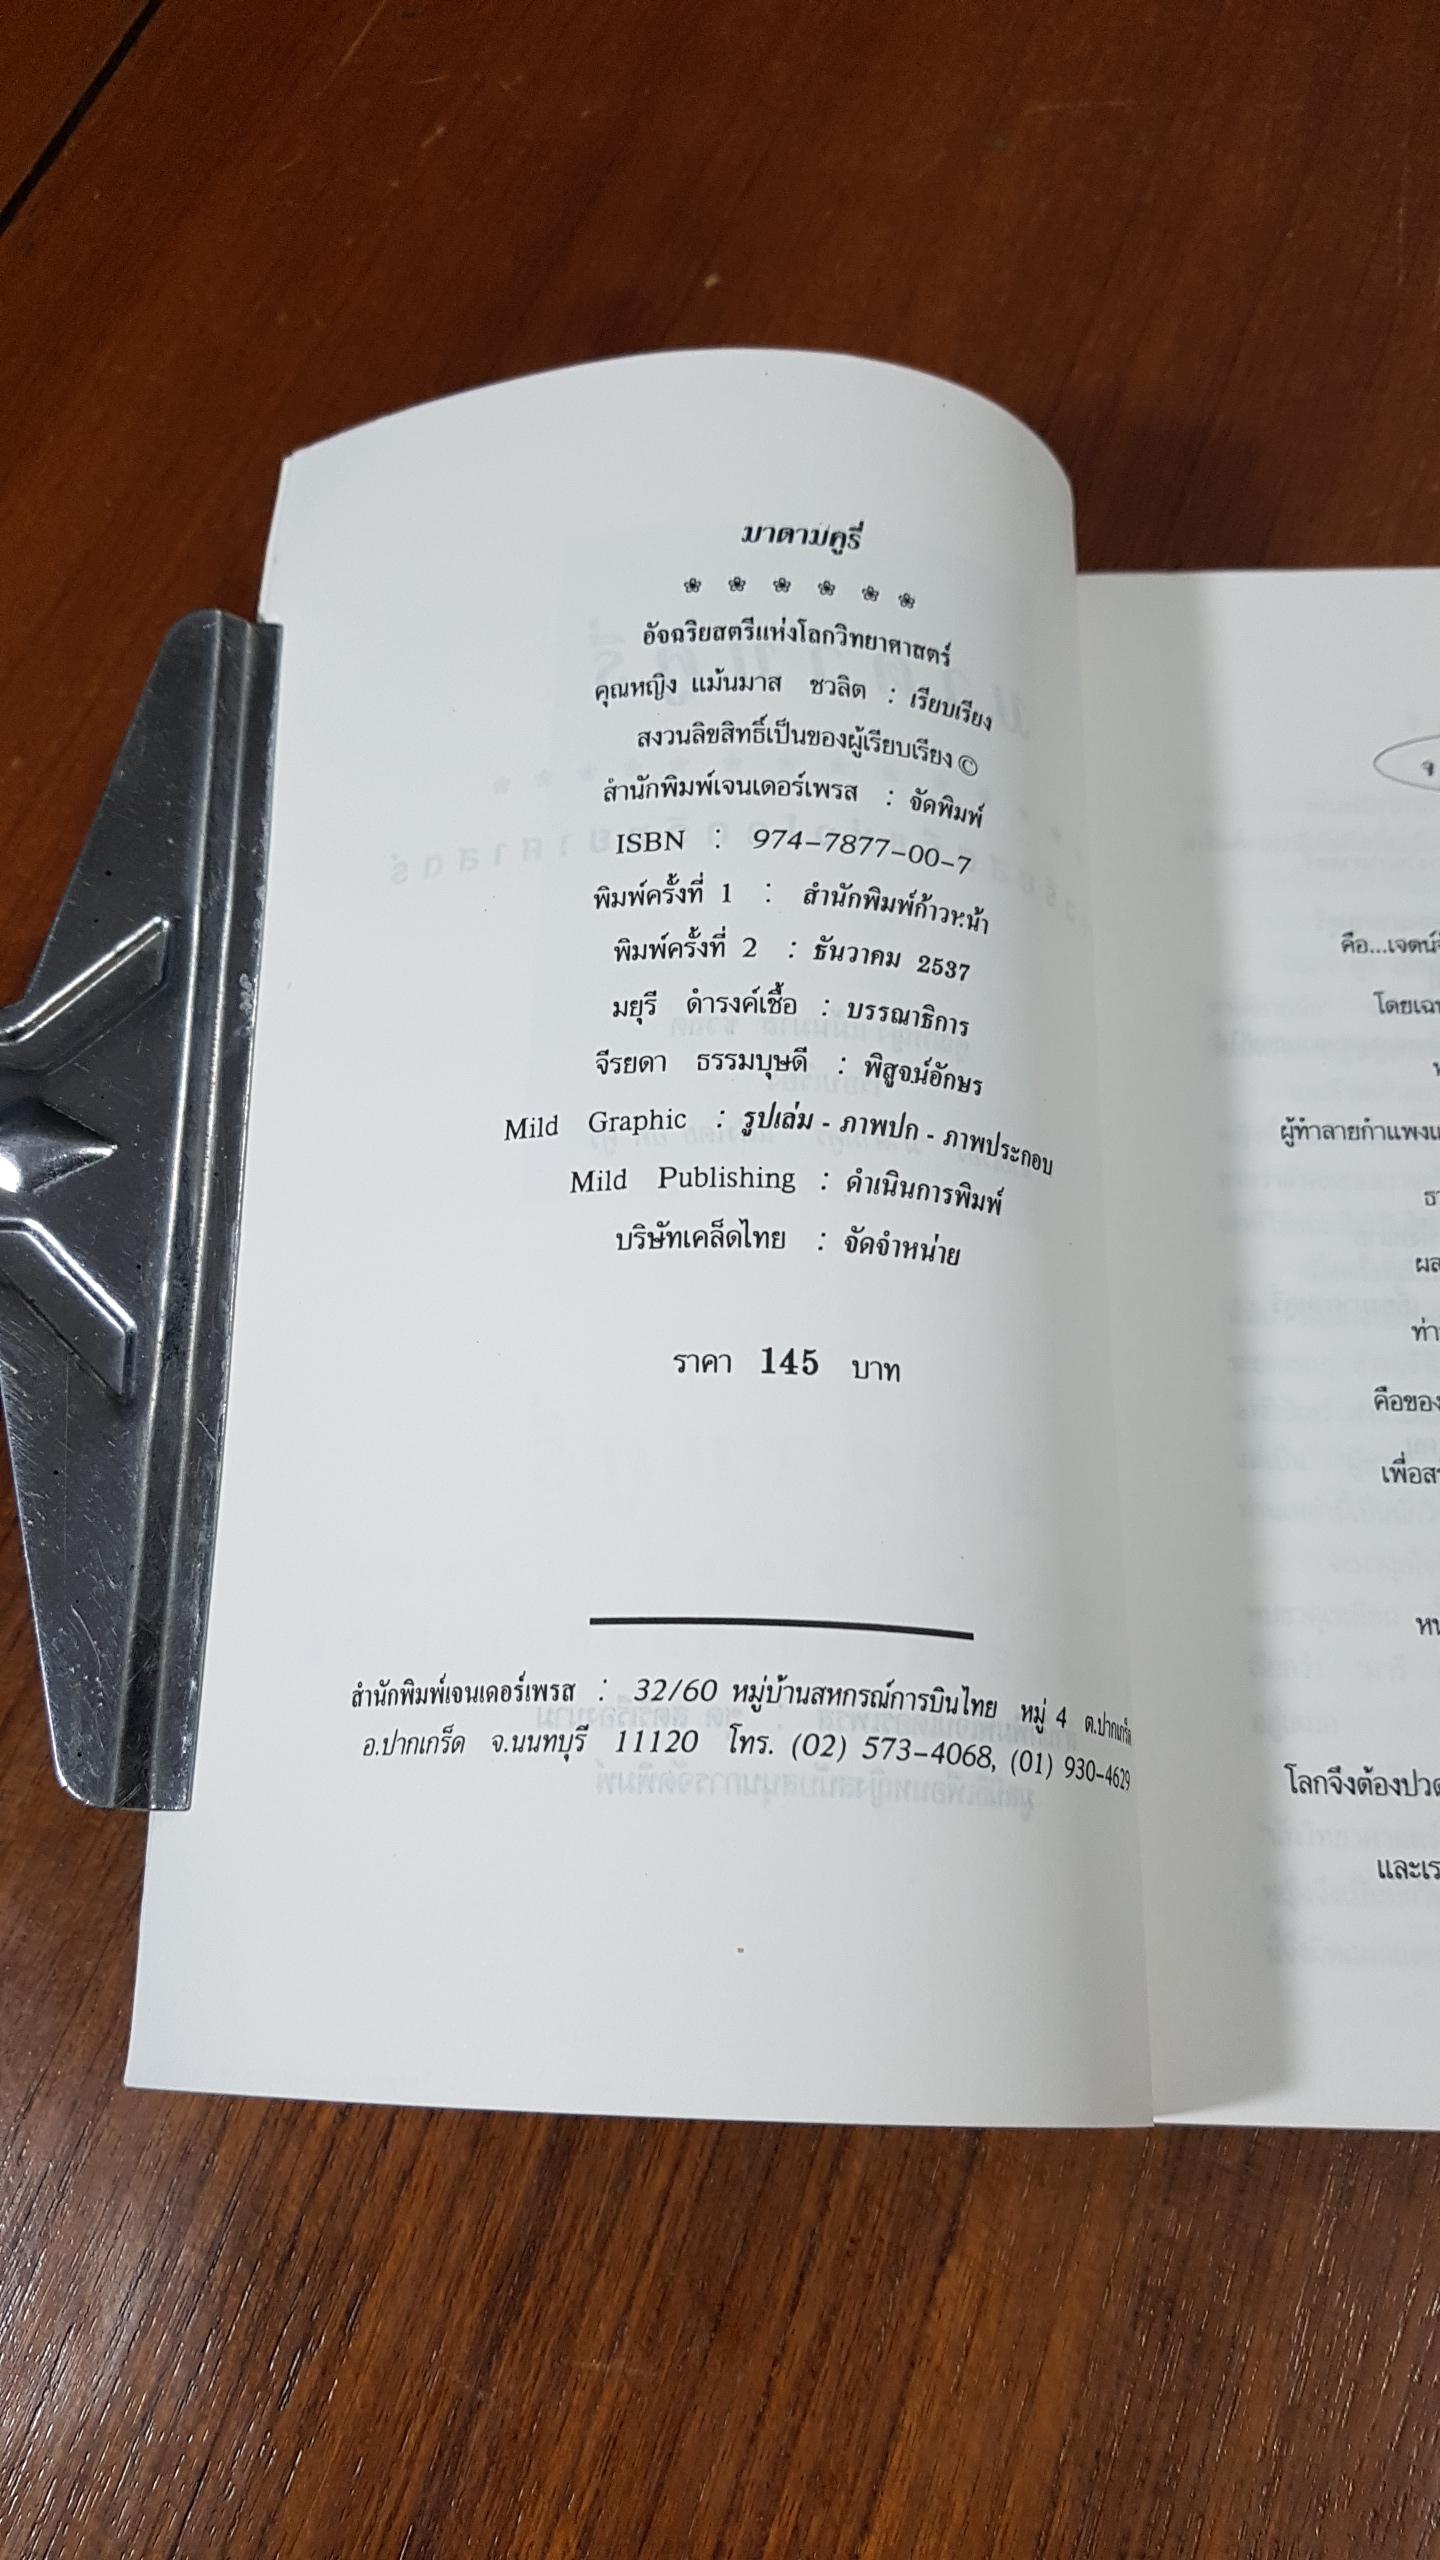 มาดามคูรี่
อัจฉริยสตรีแห่งโลกวิทยาศาสตร์
คุณหญิง แม้นมาส ชวลิต : เรียบเรียง
สงวนลิขสิทธิ์เป็นของผู้เรียบเรียง ©
สำนักพิมพ์เจนเดอร์เพรส : จัดพิมพ์
ISBN : 974-7877-00-7
พิมพ์ครั้งที่ 1 : สำนักพิมพ์ก้าวหน้า
พิมพ์ครั้งที่ 2 : ธันวาคม 2537
มยุรี ดำรงค์เชื้อ : บรรณาธิการ
จีรยดา ธรรมบุษดี : พิสูจน์อักษร
Mild Graphic : รูปเล่ม - ภาพปก - ภาพประกอบ
Mild Publishing : ดำเนินการพิมพ์
บริษัทเคล็ดไทย : จัดจำหน่าย
ราคา 145 บาท
สำนักพิมพ์เจนเดอร์เพรส : 32/60 หมู่บ้านสหกรณ์การบินไทย หมู่ 4 ต.ปากเกร็ด
อ.ปากเกร็ด จ.นนทบุรี 11120 โทร. (02) 573-4068, (01) 930-4629
คือ...เจตน์
โดยเฉ
ผู้ทำลายกำแพง
ธา
ผล
ท่า
คือของ
เพื่อส
หน
โลกจึงต้องปวด
และเร